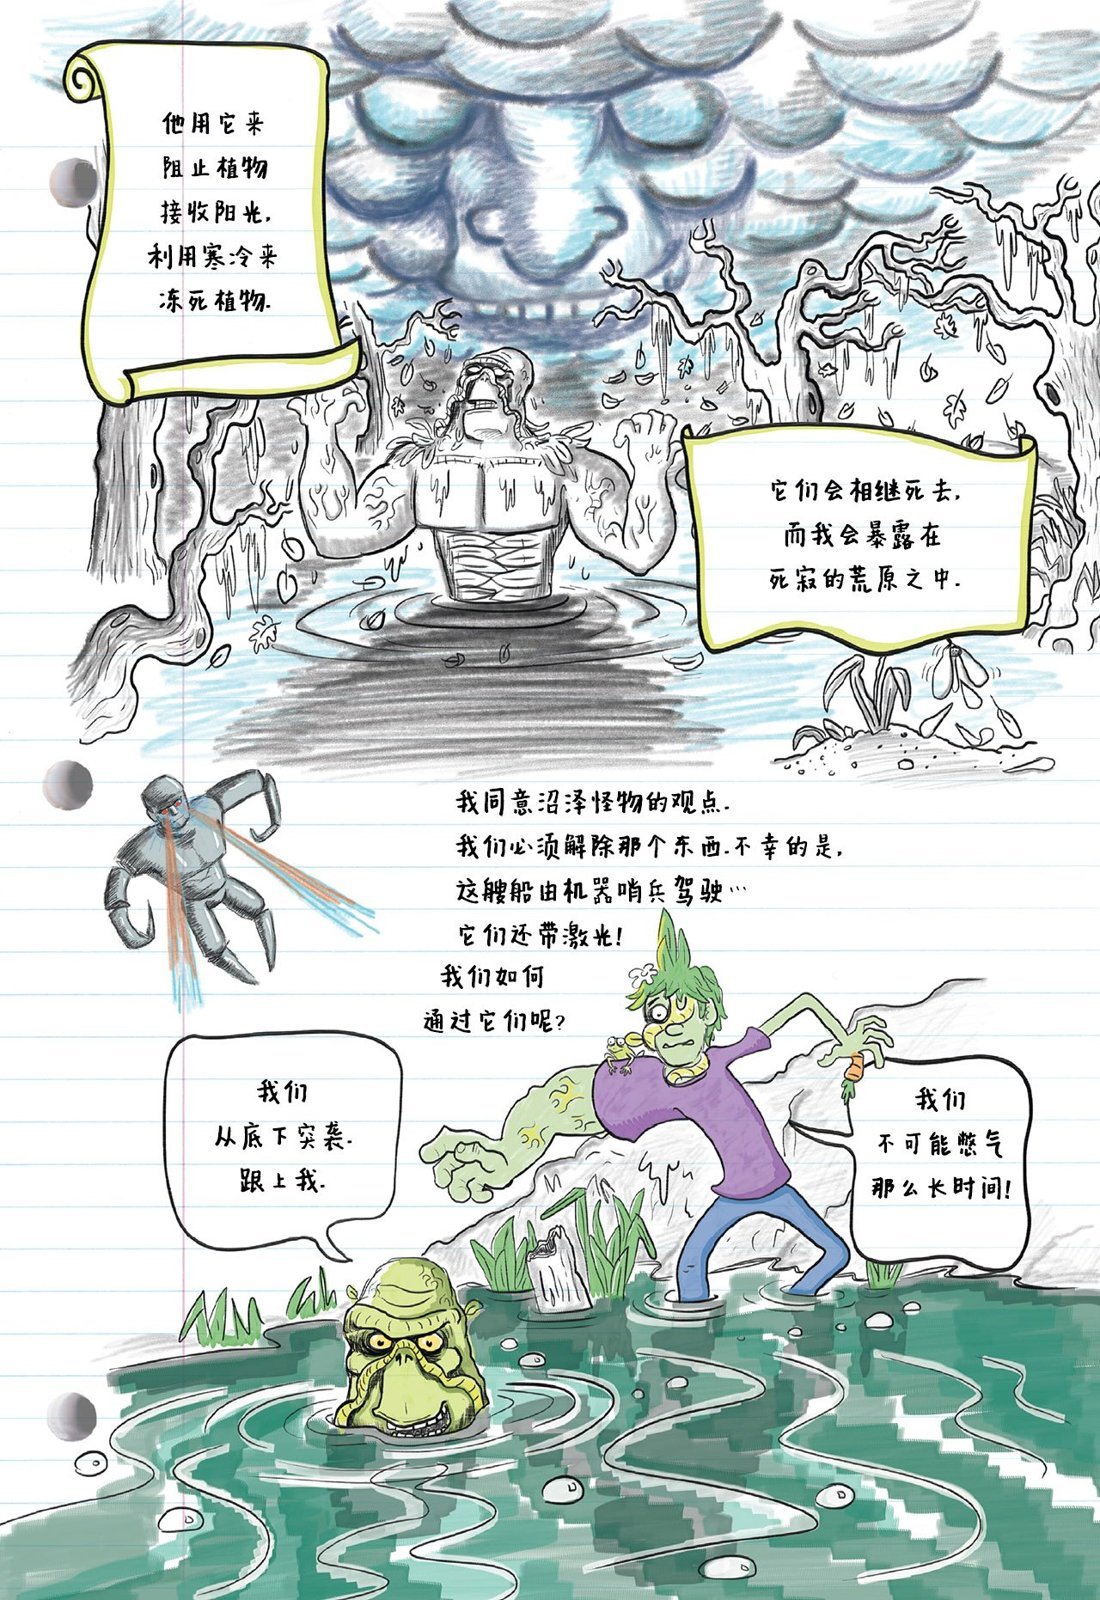 他用它来
阻止植物
接收阳光,
利用寒冷来
冻死植物.
它们会相继死去,
而我会暴露在
死寂的荒原之中.
我同意沼泽怪物的观点.
我们必须解除那个东西.不幸的是,
这艘船由机器哨兵驾驶…
它们还带激光!
我们如何
通过它们呢?
我们
从底下突袭.
跟上我.
我们
不可能憋气
那么长时间!